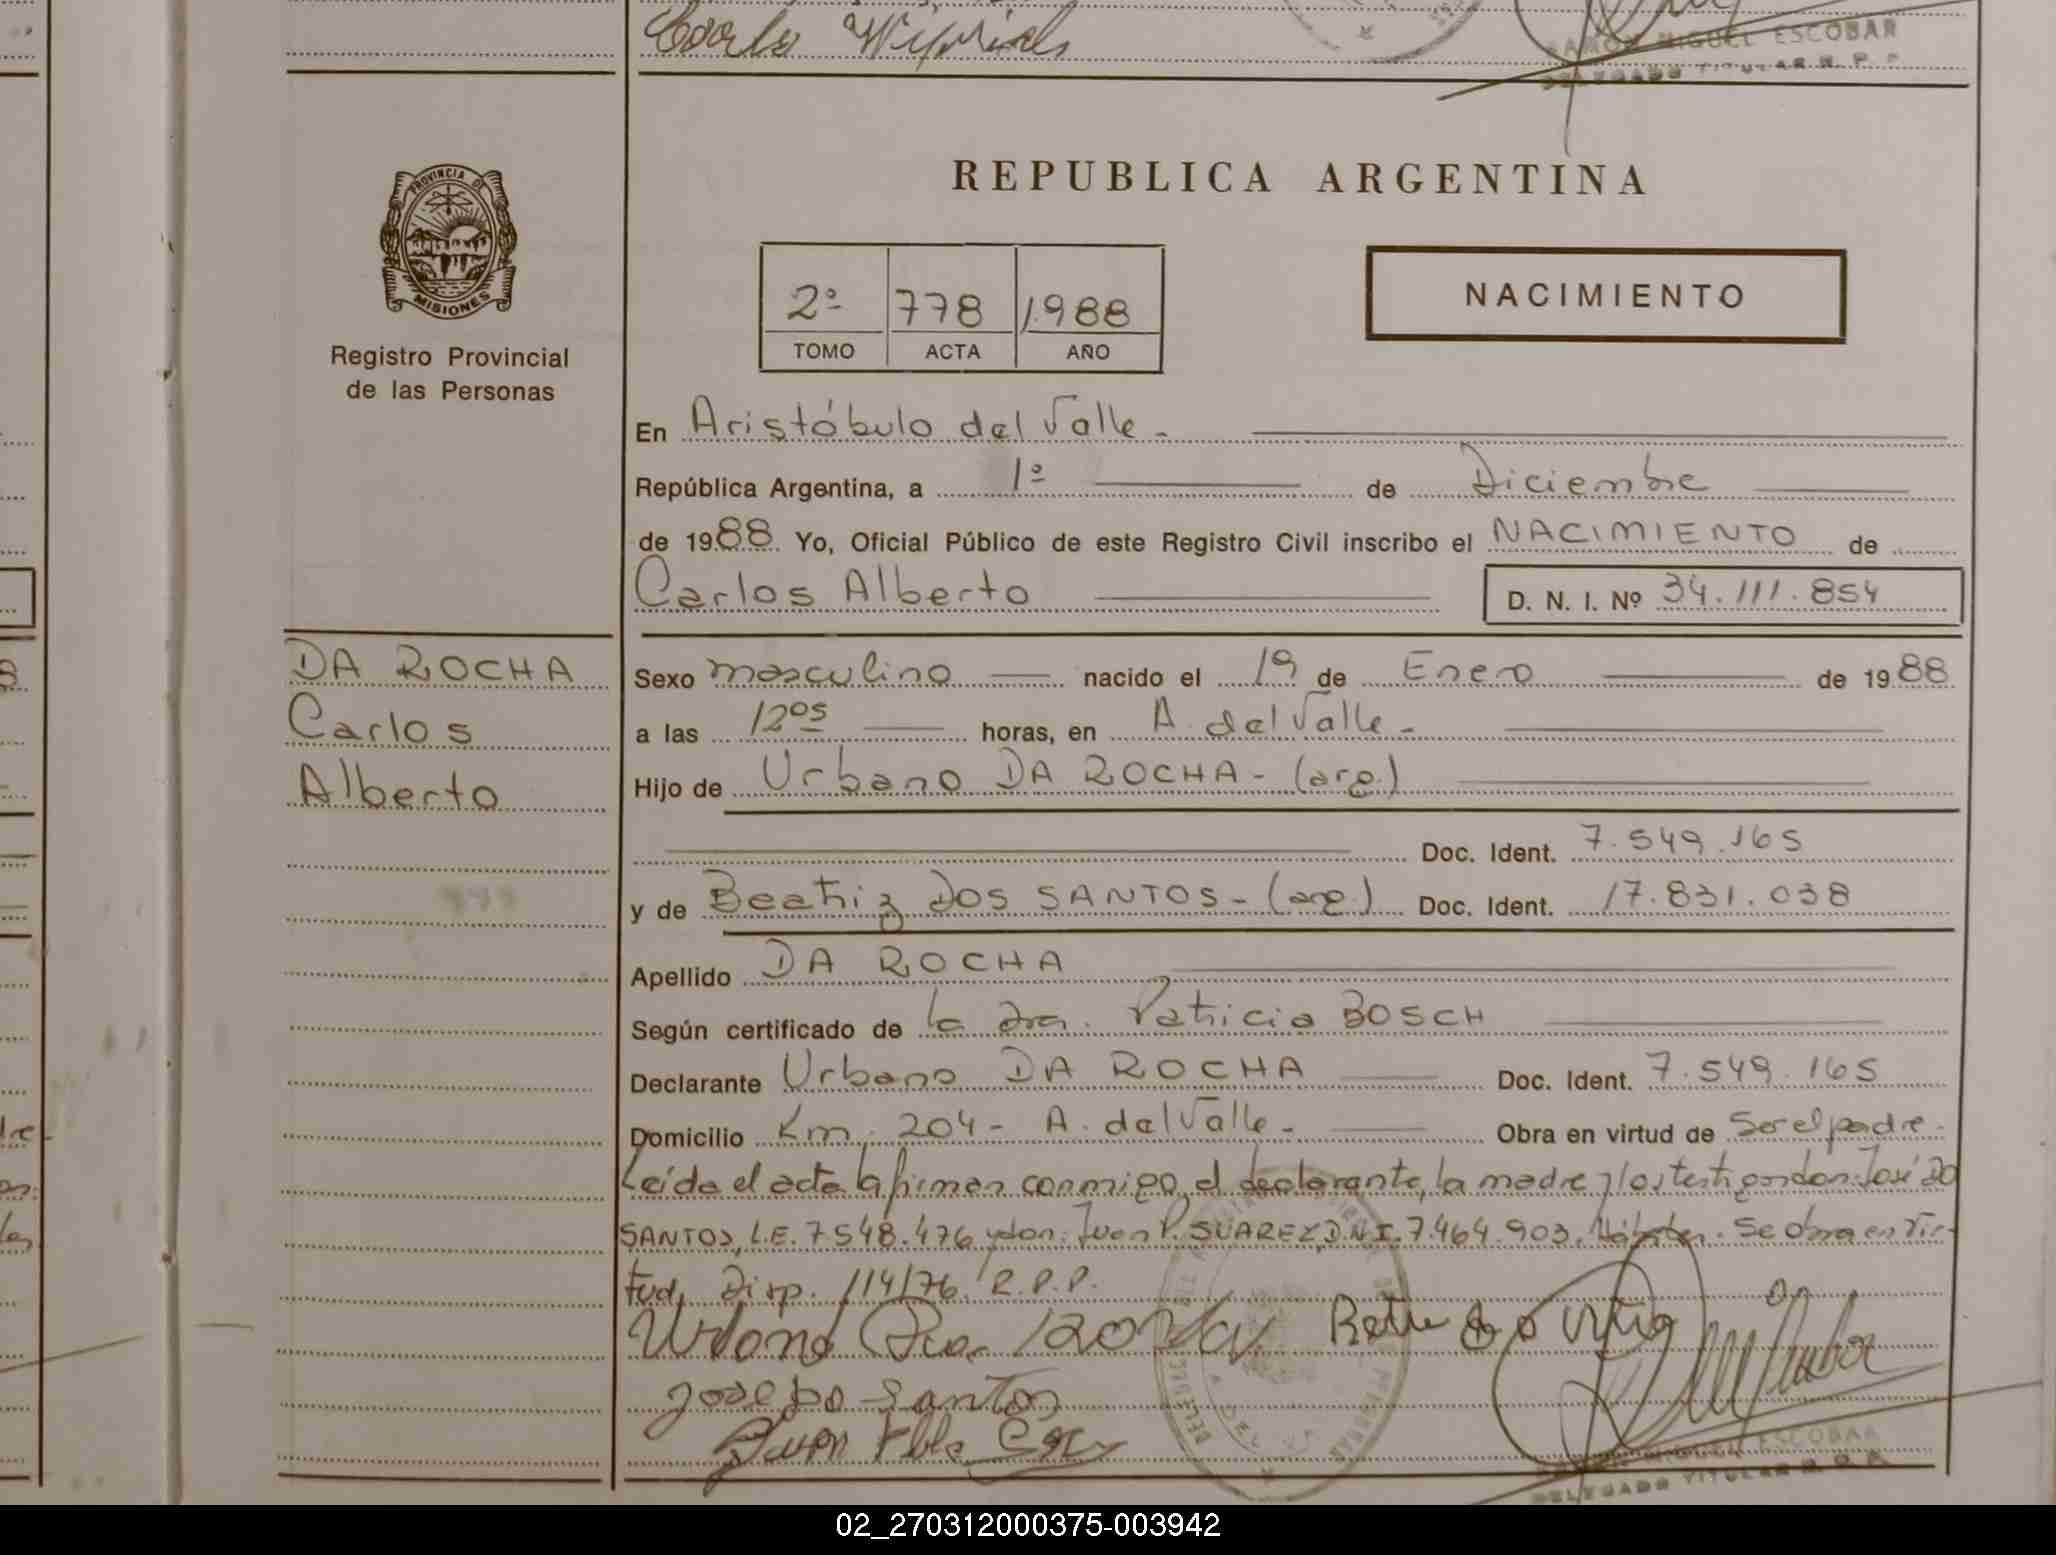 RAMON MIGUEL ESCOBAR
DELEGADO TITULAR R. P. P.
PROVINCIA DE
MISIONES
Registro Provincial
de las Personas
REPUBLICA ARGENTINA
2º 778 1988
TOMO ACTA AÑO
NACIMIENTO
En Aristóbulo del Valle -
República Argentina, a 1º de Diciembre
de 1988 Yo, Oficial Público de este Registro Civil inscribo el NACIMIENTO de
Carlos Alberto D. N. I. Nº 34.111.854
DA ROCHA
Carlos
Alberto
Sexo masculino nacido el 19 de Enero de 1988
a las 12 os horas, en A. del Valle -
Hijo de Urbano DA ROCHA - (arg.)
Doc. Ident. 7.549.165
y de Beatriz DOS SANTOS - (arg.) Doc. Ident. 17.831.038
Apellido DA ROCHA
Según certificado de la Dra. Patricia BOSCH
Declarante Urbano DA ROCHA Doc. Ident. 7.549.165
Domicilio Km. 204 - A. del Valle - Obra en virtud de Ser el padre -
Leída el acta la firman conmigo, el declarante, la madre y los testigos don: José DO
SANTOS, L.E. 7.548.476 y don: Juan P. SUAREZ, D.N.I. 7.464.903. Hábiles. Se obra en vir-
tud Disp. 114/76 R.P.P.
Jose Do Santos
RAMON MIGUEL ESCOBAR
DELEGADO TITULAR R. P. P.
02_270312000375-003942